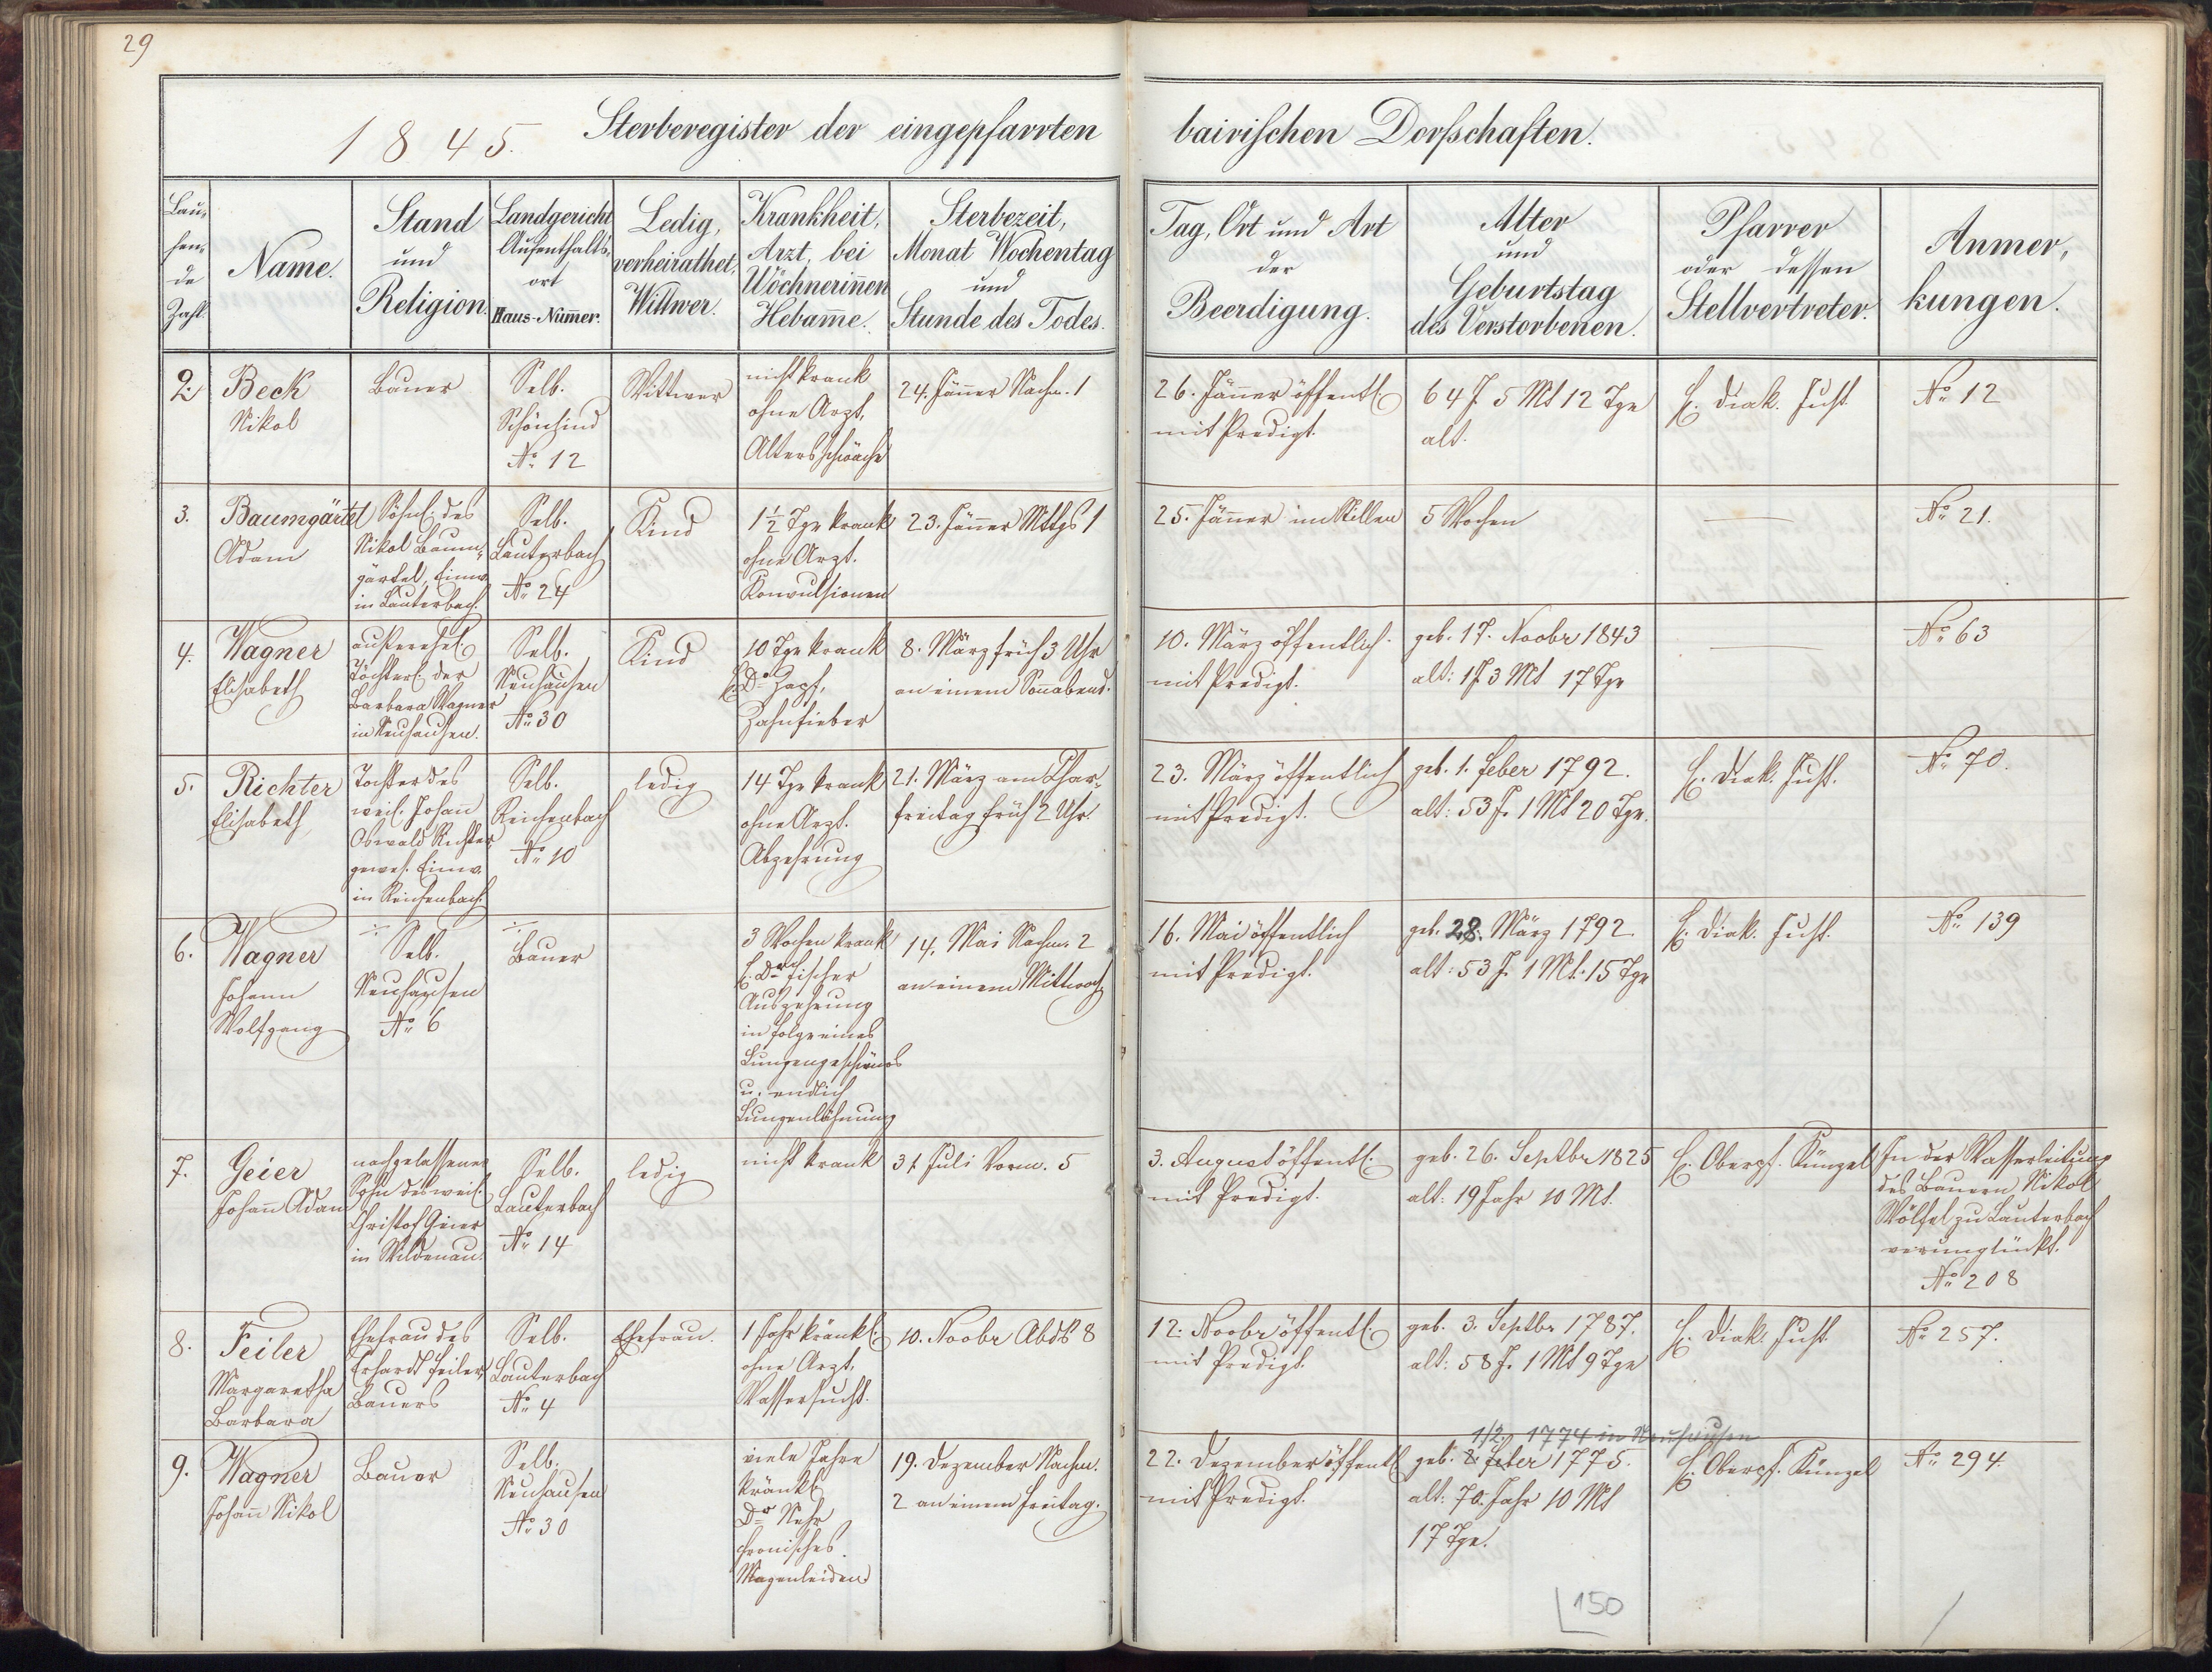 29
1845. Sterberegister der eingepfarrten bairischen Dorfschaften.
Lau-
fen-
de
Zahl.
Name.
Stand
und
Religion.
Landgericht
Aufenthalts-
ort
Haus-Num̅er.
Ledig,
verheirathet,
Wittwer.
Krankheit,
Arzt, bei
Wöchnerin̅en
Hebam̅e.
Sterbezeit,
Monat Wochentag
und
Stunde des Todes.
Tag, Ort und Art
der
Beerdigung.
Alter
und
Geburtstag
des Verstorbenen.
Pfarrer
oder dessen
Stellvertreter.
Anmer-
kungen.
2.
Beck
Nikol
Bauer
Selb.
Schönlind
No 12
Wittwer
nicht krank
ohne Arzt,
Altersschwäche
24. Jän̅er Nachm. 1
26. Jän̅er öffentl.
mit Predigt.
64 J 5 Mt 12 Tge
alt.
H. Diak. Just.
No 12
3.
Baumgärtel
Adam
Söhnl. des
Nikol Baum-
gärtel, Einw.
in Lauterbach.
Selb.
Lauterbach
No 24
Kind
1½ Tge krank
ohne Arzt.
Konvulsionen
23. Jän̅er Mttgs 1
25. Jän̅er im Stillen
5 Wochen
No 21.
4.
Wagner
Elisabeth
außerehel.
Töchterl. der
Barbara Wagner
in Neuhausen.
Selb.
Neuhausen
No 30
Kind
10 Tge krank
H. Dr Zapf,
Zahnfieber
8. März früh 3 Uhr
an einem Son̅abend.
10. März öffentlich
mit Predigt.
geb. 17. Novbr 1843
alt: 1 J 3 Mt 17 Tge
No 63
5.
Richter
Elisabeth
Tochter des
weil. Johan
Oswald Richter
gewes. Einw.
in Reichenbach.
Selb.
Reichenbach
No 10
ledig
14 Tge krank
ohne Arzt.
Abzehrung
21. März am Char-
freitag früh 2 Uhr.
23. März öffentlich
mit Predigt.
geb. 1. Feber 1792.
alt: 53 J. 1 Mt 20 Tge.
H. Diak. Just.
No 70.
6.
Wagner
Johann
Wolfgang
÷
Selb.
Neuhausen
No 6
÷
Bauer
3 Wochen krank
H. Dr Fischer
Auszehrung
in Folge eines
Lungengeschwürs
u. endlich
Lungenlähmung
14. Mai Nachm. 2
an einem Mittwoch
16. Mai öffentlich
mit Predigt.
geb. 28. März 1792
alt: 53 J. 1 Mt. 15 Tge
H. Diak. Just.
No 139
7.
Geier
Johan̅ Adam
nachgelassener
Sohn des weil.
Christof Geier
in Wildenau.
Selb.
Lauterbach
No 14
ledig
nicht krank
31 Juli Vorm. 5
3. August öffentl.
mit Predigt.
geb. 26. Septbr 1825
alt: 19 Jahr 10 Mt.
H. Oberpf. Künzel
In der Wasserleitung
des Bauern Nikol
Wölfel zu Lauterbach
verunglückt.
No 208
8.
Feiler
Margaretha
Barbara
Ehefrau des
Erhardt Feiler
Bauers
Selb.
Lauterbach
No 4
Ehefrau.
1 Jahr kränkl.
ohne Arzt,
Wassersucht.
10. Novbr Abds 8
12. Novbr öffentl.
mit Predigt.
geb. 3. Septbr 1787.
alt: 58 J. 1 Mt 9 Tge
H. Diak. Just
No 257.
9.
Wagner
Johan̅ Nikol
Bauer
Selb.
Neuhausen
No 30
viele Jahre
kränkl.
Dr Nehr
chronisches
Magenleiden
19. Dezember Nachm.
2 an einem Freitag.
22. Dezember öffentl
mit Predigt.
1/2. 1774 in Neuhausen
geb. 2. Feber 1775.
alt: 70. Jahr 10 Mt
17 Tge.
H. Oberpf. Künzel
No 294.
150